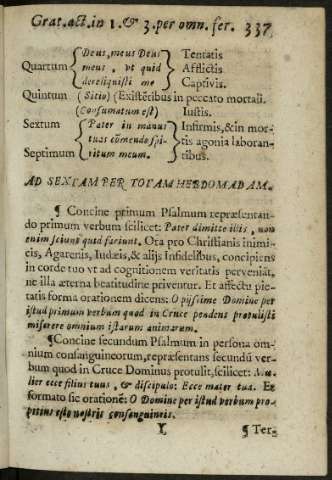 Grat. act. in 1. & 3. per omn. fer. 337
Deus, meus Deus Tentatis
Quartum meus, vt quid Afflictis
dereliquisti me Captivis.
Quintum (Sitio) (Existētibus in peccato mortali.
(Consumatum est) Iustis.
Sextum Pater in manus Infirmis, & in mor-
tuas cōmendo spi- tis agonia laboran-
Septimum ritum meum. tibus.
AD SEXTAM PER TOTAM HEBDOMADAM.
¶ Concine primum Psalmum repræsentan-
do primum verbum scilicet: Pater dimitte illis, non
enim sciunt quid faciunt. Ora pro Christianis inimi-
cis, Agarenis, Iudæis, & alijs Infidelibus, concipiens
in corde tuo vt ad cognitionem veritatis perveniāt,
ne illa æterna beatitudine priventur. Et affectu pie-
tatis forma orationem dicens: O pijssime Domine per
istud primum verbum quod in Cruce pendens protulisti
miserere omnium istarum animarum.
¶ Concine secundum Psalmum in persona om-
nium consanguineorum, repræsentans secundū ver-
bum quod in Cruce Dominus protulit, scilicet: Mu-
lier ecce filius tuus, & discipulo: Ecce mater tua. Et
formato sic orationē: O Domine per istud verbum pro-
pitius esto nostris consanguineis.
Y ¶ Ter-